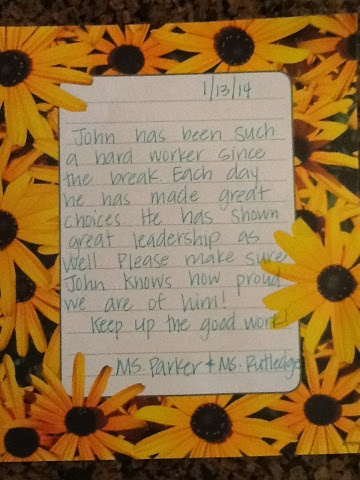 1/13/14
John has been such
a hard worker since
the break. Each day
he has made great
choices. He has shown
great leadership as
well. Please make sure
John knows how proud
we are of him!
Keep up the good work!
Ms. Parker + Ms. Rutledge